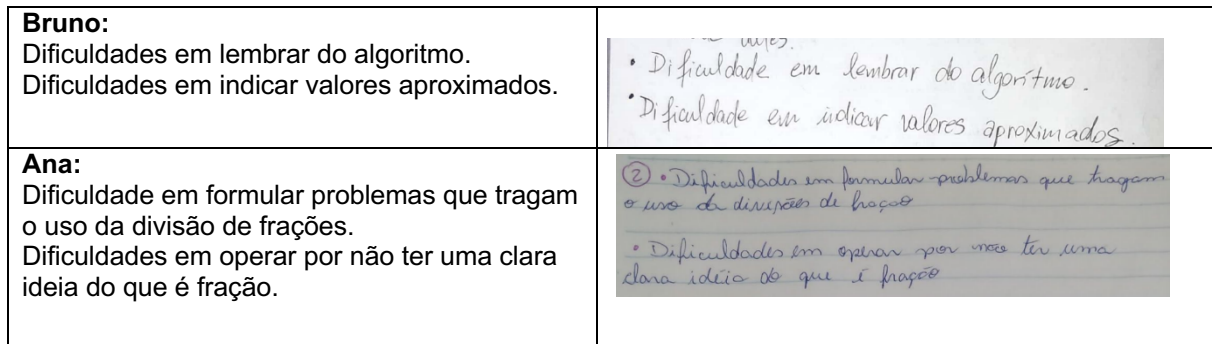 Bruno:
Dificuldades em lembrar do algoritmo.
Dificuldades em indicar valores aproximados.
• Dificuldade em lembrar do algorítmo.
• Dificuldade em indicar valores aproximados.
Ana:
Dificuldade em formular problemas que tragam
o uso da divisão de frações.
Dificuldades em operar por não ter uma clara
ideia do que é fração.
② • Dificuldades em formular problemas que tragam
o uso da de fração
• Dificuldades em operar por não ter uma
clara idéia do que é fração